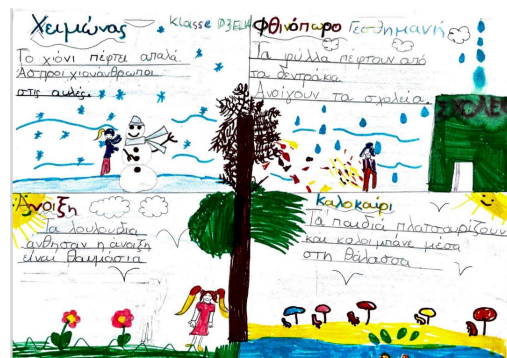 Χειμώνας
Klasse D3ELH
Το χιόνι πέφτει απαλά.
Άσπροι χιονάνθρωποι
στις αυλές.
Φθινόπωρο Γεσθημανή
Τα φύλλα πέφτουν από
τα δεντράκα.
Ανοίγουν τα σχολεία.
ΣΧΟΛΕΙ
Άνοιξη
Τα λουλούδια
άνθησαν η άνοιξη
είναι θαυμάσια
Καλοκαίρι
Τα παιδιά πλατσαρίζουν
και κολυμπάνε μέσα
στη θάλασσα